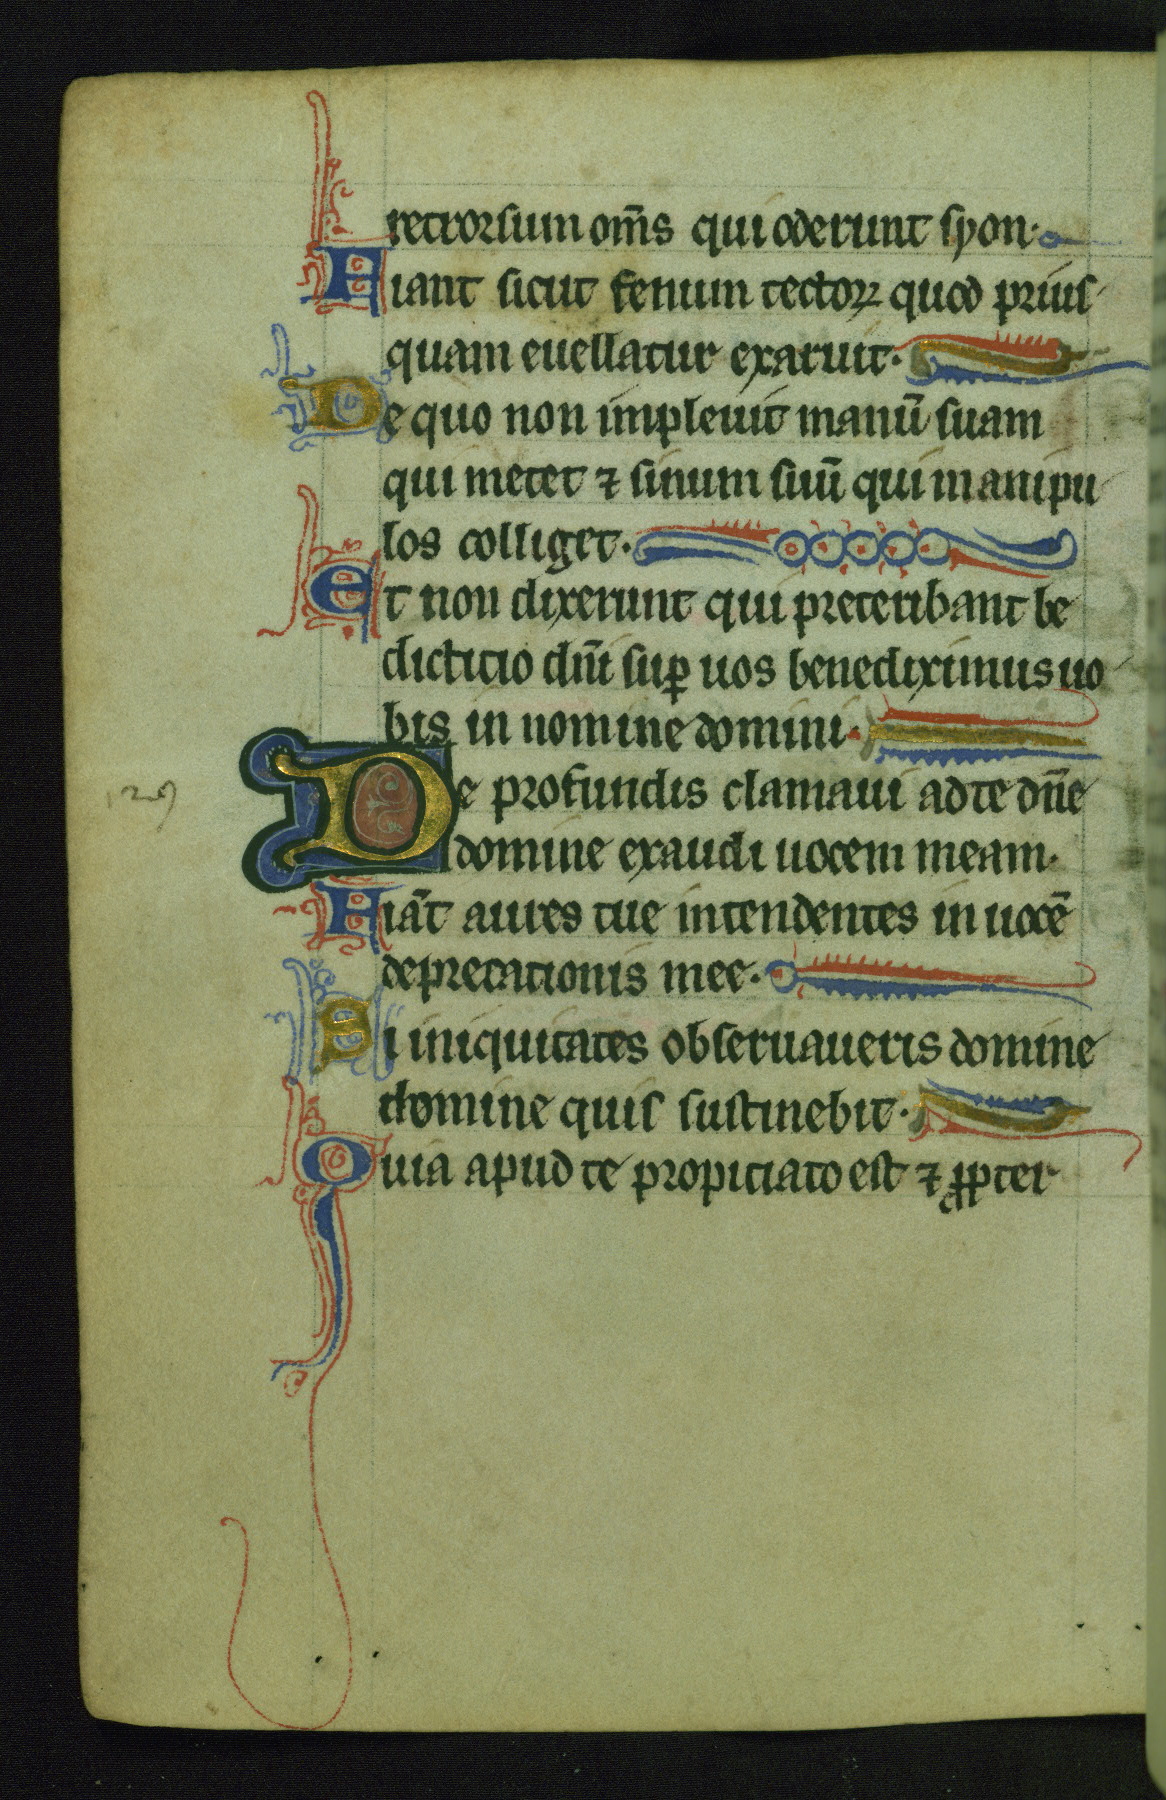 retrorsum om̄s qui oderunt syon·
Fiant sicut fenum tectoꝝ quod prius
quam euellatur exaruit·
De quo non impleuit manū suam
qui metet ⁊ sinum suū qui manipu
los colliget·
Et non dixerunt qui preteribant be
dictio dn̄i suꝑ uos benediximus uo
bis in nomine domini·
De profundis clamaui ad te dn̄e
domine exaudi uocem meam·
Fiāt aures tue intendentes in uocē
deprecationis mee·
Si iniquitates obseruaueris domine
domine quis sustinebit·
Quia apud te propiciato est ⁊ ꝓpter
129